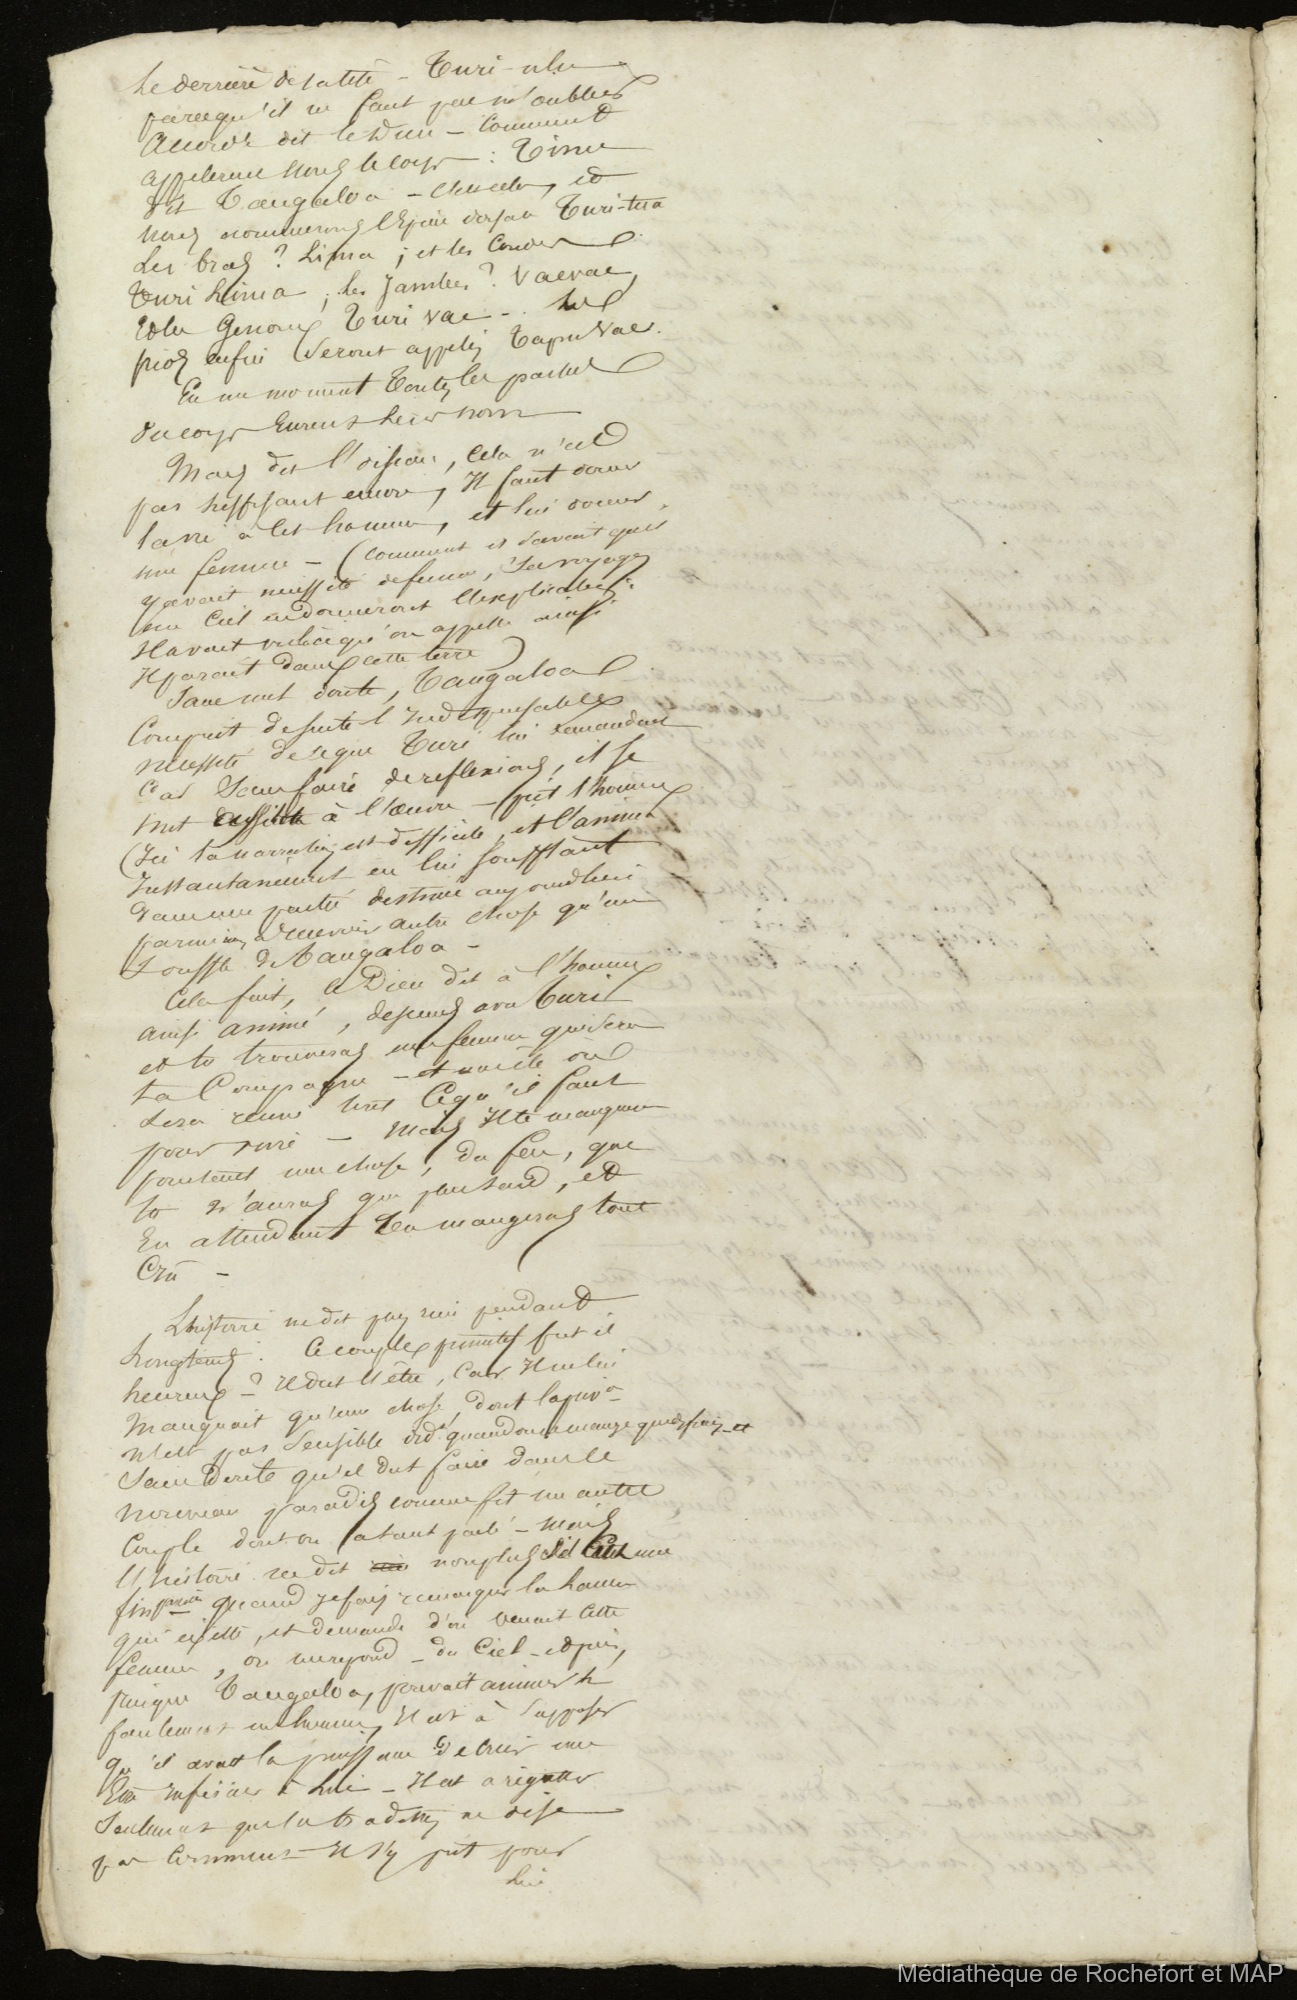 Le derrière de la tête - Turi-ulu
parcequ'il ne faut pas m'oublier
Accordé dit le Dieu - Comment
appelerons nous le corps : Tino
dit Tangaloa - c'est cela, et
nous nommerons l'Epine dorsale Turi-tua
Les bras ? Lima ; et les Coudes
Turi Lima ; les Jambes ? Vaevae,
Et les Genoux Turi vae - . Les
pieds enfin seront appelés Tapu Vae.
En un moment Toutes les parties
du corps Eurent leur nom
Mais dit l'oiseau, cela n'est
pas suffisant encore, Il faut donner
la vie à cet homme, et lui donner
une femme - (Comment il savait qu'il
y avait nécessité de femme, Ses voyages
au Ciel en donneront l'explication :
Il avait vu là ce qu'on appelle ainsi
Il parait dans cette terre )
Sans nul doute, Tangaloa
Comprit de suite l'Indispensable
nécessité de ce que Turi lui demandait
Car Sans faire de reflexions, il se
mit à l'œuvre - prit l'homme
(Ici la narration est difficile, et l'anima
Instantanément en lui soufflant
Dans une partie destinée aujourdhui
parmi nous à recevoir autre chose qu'un
Souffle de Tangaloa -
Cela fait, le Dieu dit à l'homme
ainsi animé, descends avec Turi
et tu trouveras une femme qui sera
ta Compagne - et une île où
sera réuni tout Ce qu'il faut
pour vivre - Mais Il te manquera
pourtant une chose, du feu, que
tu n'auras que plus tard, et
En attendant Tu mangeras tout
Cru -
L'histoire ne dit pas si pendant
Longtems . Ce couple primitif fut il
heureux - ? Il dut l'être, Car Il ne lui
Manquait qu'une chose, dont la priv°
n'est pas sensible quand on ne mange que des fruits - et
Sans Doute qu'il dut faire dans le
nouveau paradis comme fit un autre
Couple dont on a tant parlé - Mais
l'histoire ne dit non plus
quand je fais remarquer la
qui existe, et demande d'où venait Cette
femme, on me repond - du Ciel - et puis,
puisque Tangaloa, pouvait animer
un homme, Il est à Supposer
qu'il avait la puissance De créer une
Inférieur à Lui - Il est à regretter
Seulement que la tradition ne dise
pas Comment Il s'y prit pour
Lui
Médiathèque de Rochefort et MAP